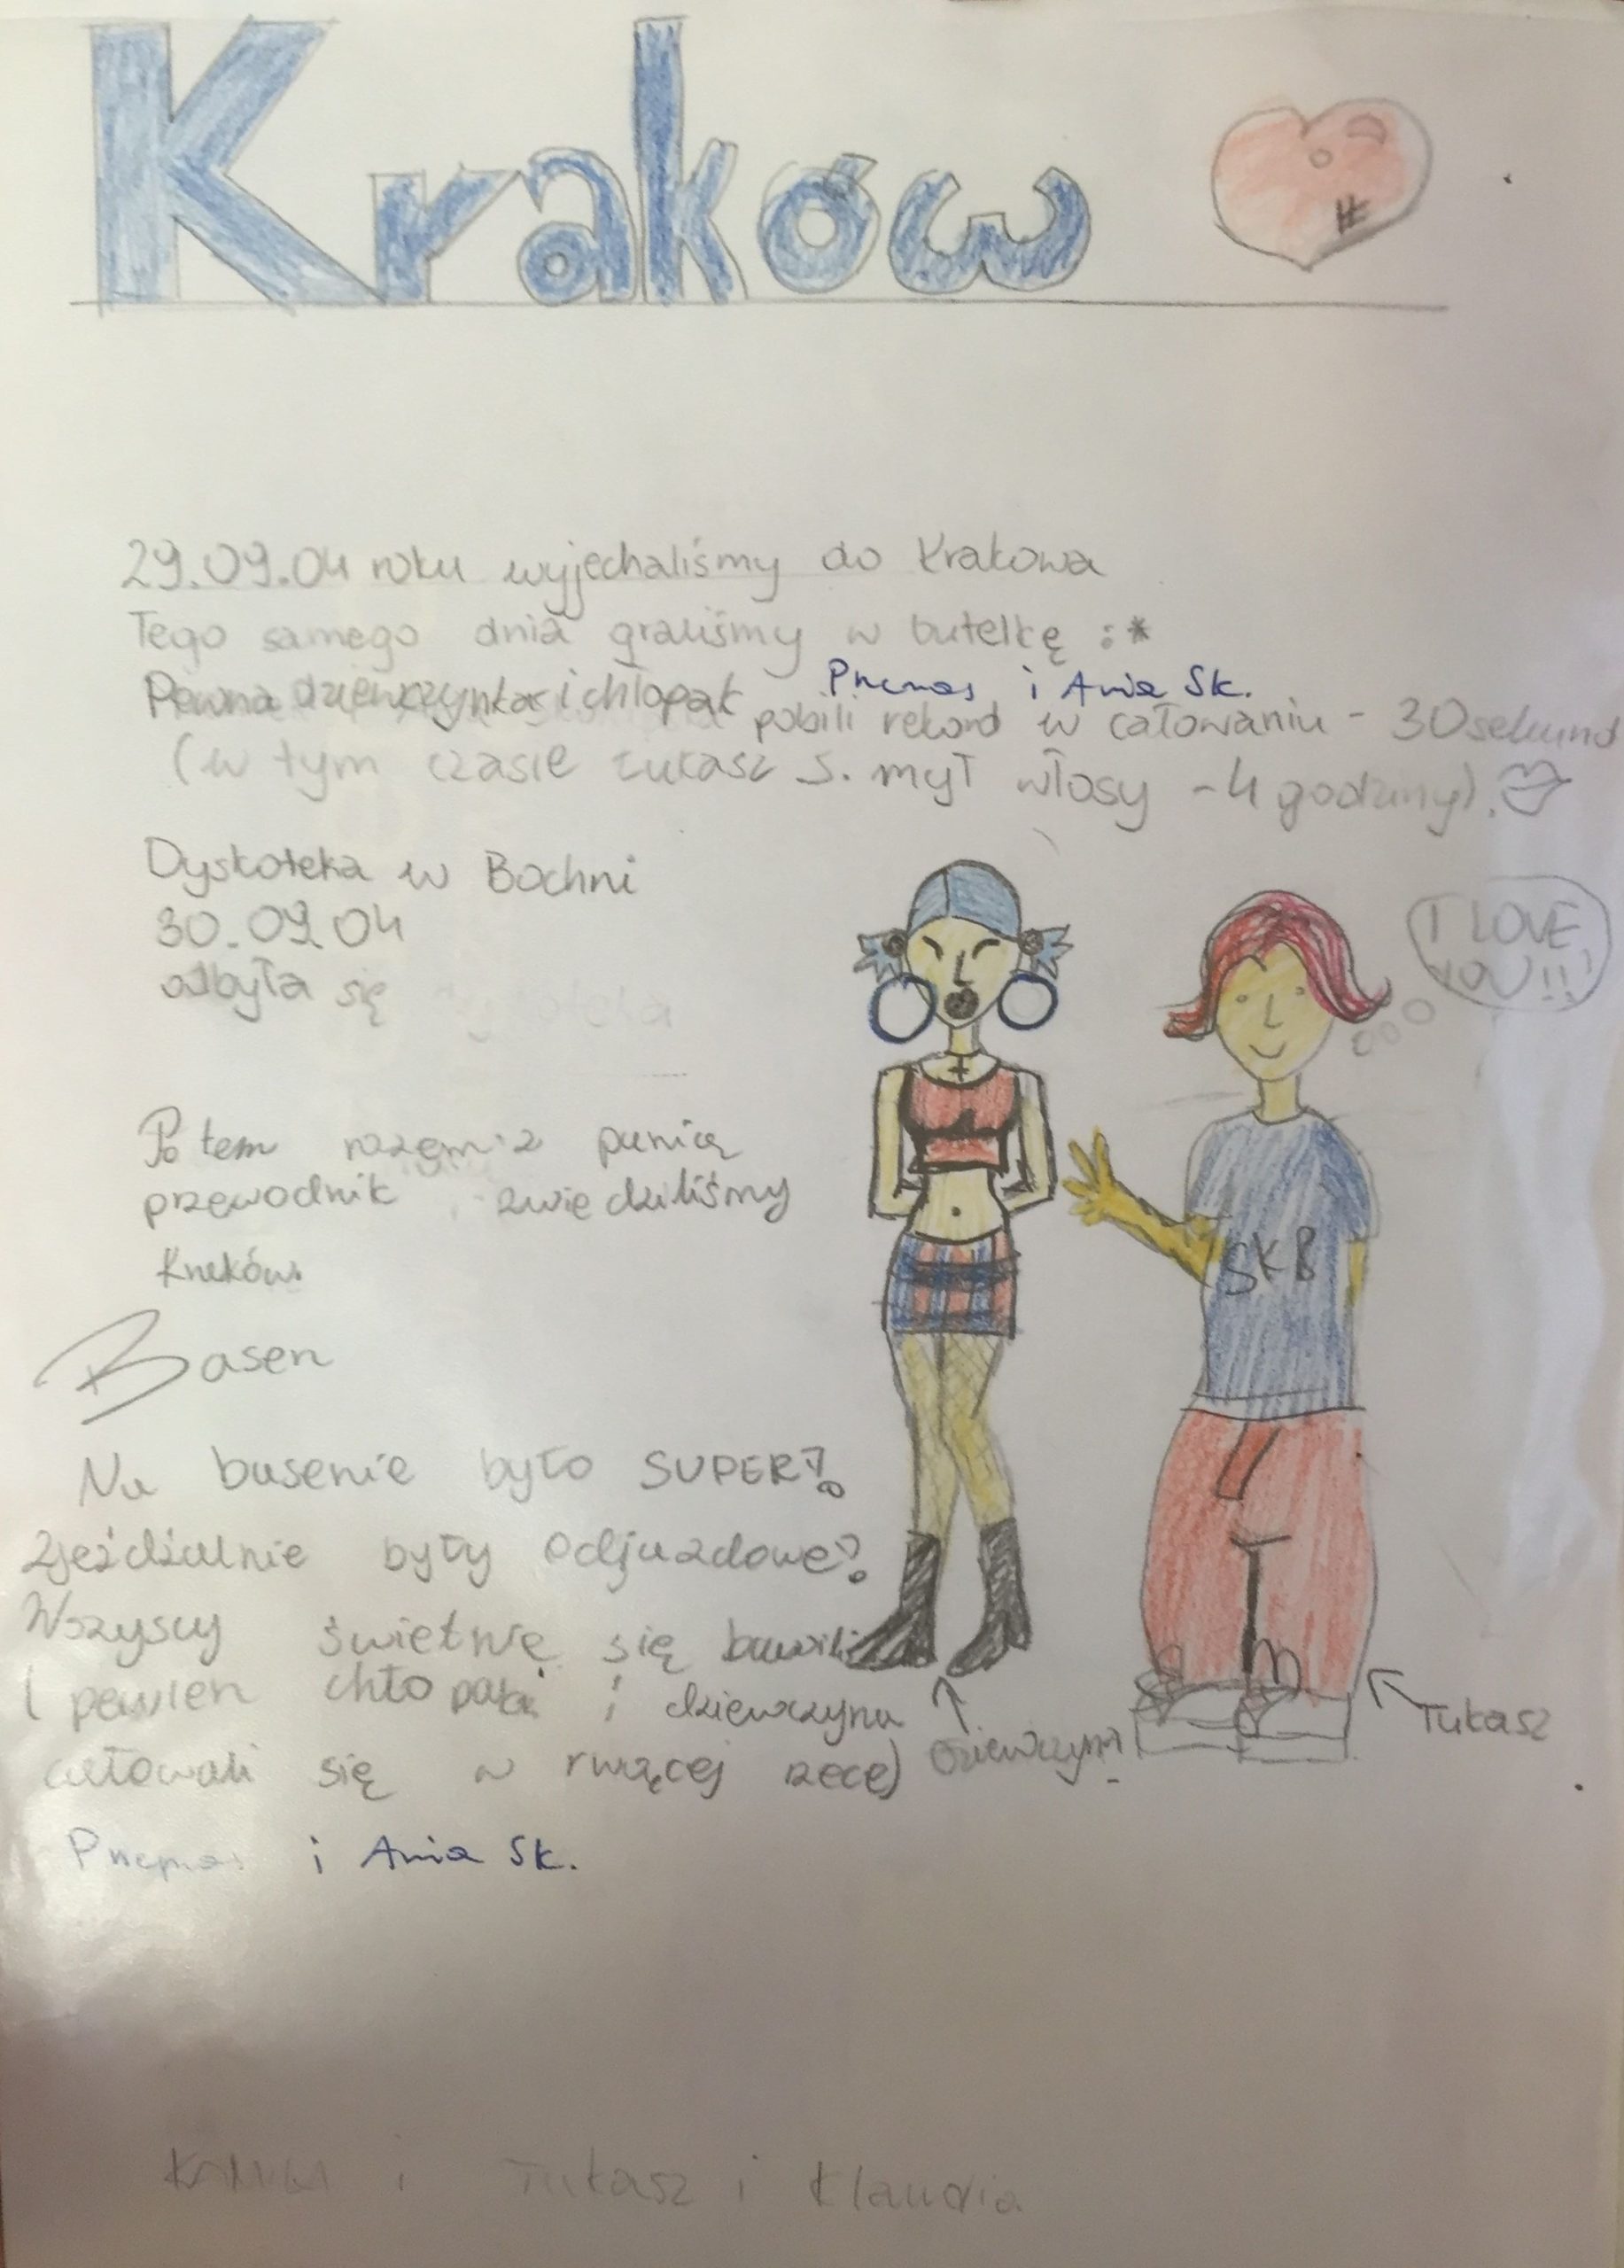 Kraków
29.09.04 roku wyjechaliśmy do Krakowa
Tego samego dnia graliśmy w butelkę :*
i Ania Sk.
Pewna dziewczynka i chłopak pobili rekord w całowaniu - 30 sekund
(w tym czasie Łukasz S. mył włosy - 4 godziny).
Dyskoteka w Bochni
30.09.04
odbyła się
I LOVE
YOU!!!
Potem razem z panią
przewodnik zwiedziliśmy
Kraków.
SKB
Basen
Na basenie było SUPER!
Zjeżdżalnie były odjazdowe!
Wszyscy świetnie się bawili
( pewien chłopak i dziewczyna
całowali się w rwącej rzece)
Dziewczyna
Łukasz
i Ania Sk.
i Łukasz i Klaudia